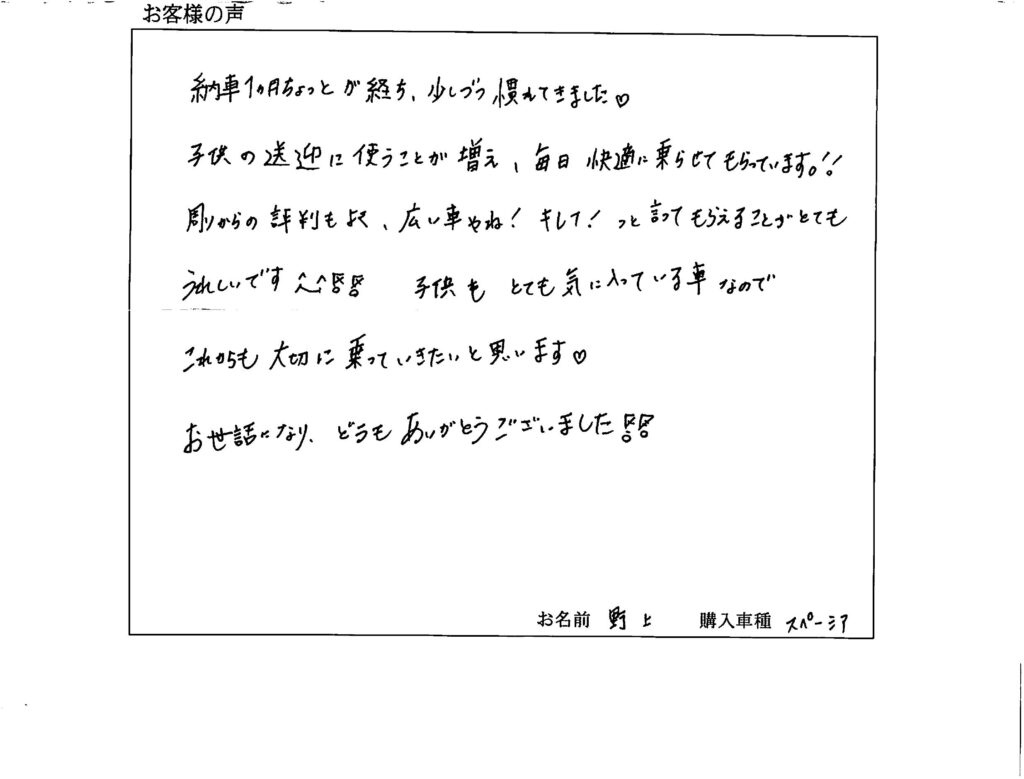 お客様の声
納車1ヵ月ちょっとが経ち、少しづつ慣れてきました♡
子供の送迎に使うことが増え、毎日快適に乗らせてもらっています!!
周りからの評判もよく、広い車やね!キレイ!っと言ってもらえることがとても
うれしいです^^!!
子供もとても気に入っている車なので
これからも大切に乗っていきたいと思います♡
お世話になり、どうもありがとうございました!!
お名前 野上 購入車種 スペーシア